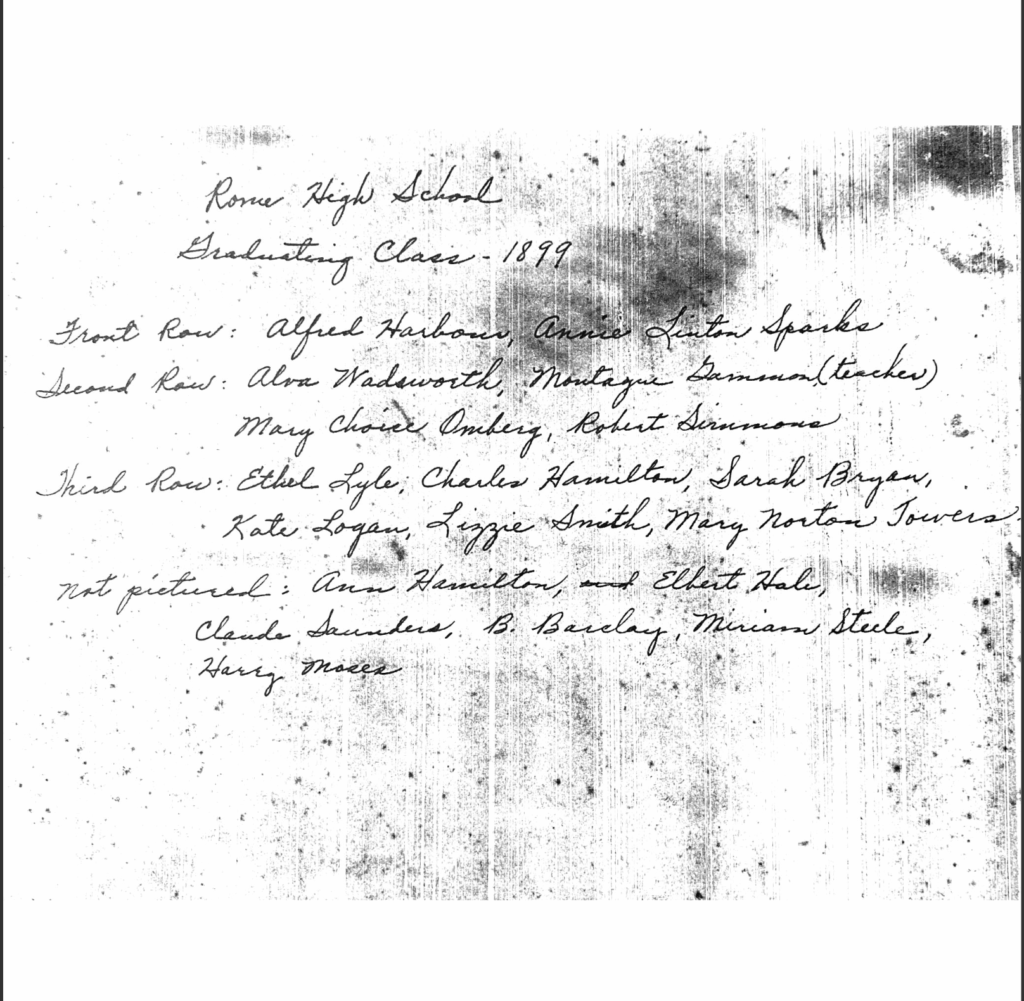 Rome High School
Graduating Class - 1899
Front Row: Alfred Harbour, Annie Linton Sparks
Second Row: Alva Wadsworth, Montague Gammon (teacher)
Mary Choice Omberg, Robert Simmons
Third Row: Ethel Lyle, Charles Hamilton, Sarah Bryan,
Kate Logan, Lizzie Smith, Mary Norton Towers
Not pictured: Ann Hamilton, and Elbert Hale,
Claude Saunders, B. Barclay, Miriam Steele,
Harry Moses